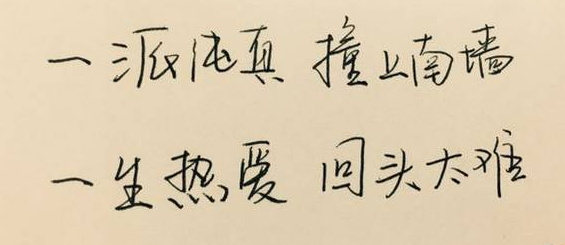 一派纯真 撞上南墙
一生热爱 回头太难